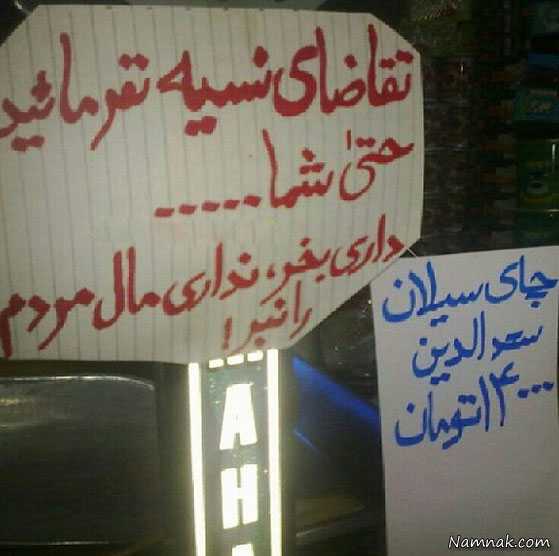 تقاضای نسیه نفرمائید
حتیٰ شما.....
داری بخر، نداری مال مردم
را نبر!
چای سیلان
سعدالدین
۱۴۰۰۰ تومان
AHA
Namnak.com